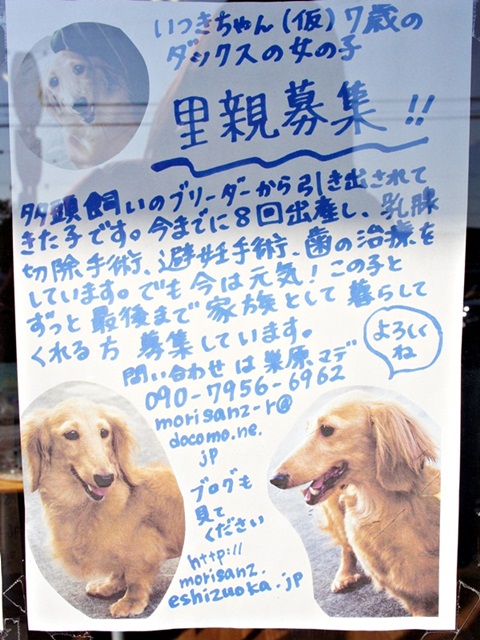 いつきちゃん(仮)7歳の
ダックスの女の子
里親募集!!
多頭飼いのブリーダーから引き出されて
きた子です。今までに8回出産し、乳腺
切除手術、避妊手術、歯の治療を
しています。でも今は元気!この子と
ずっと最後まで家族として暮らして
くれる方募集しています。
よろしく
ね
問い合わせは巣原マデ
090-7956-6962
morisanz-r@
docomo.ne.
jp
ブログも
見て
ください
http://
morisanz.
eshizuoka.jp